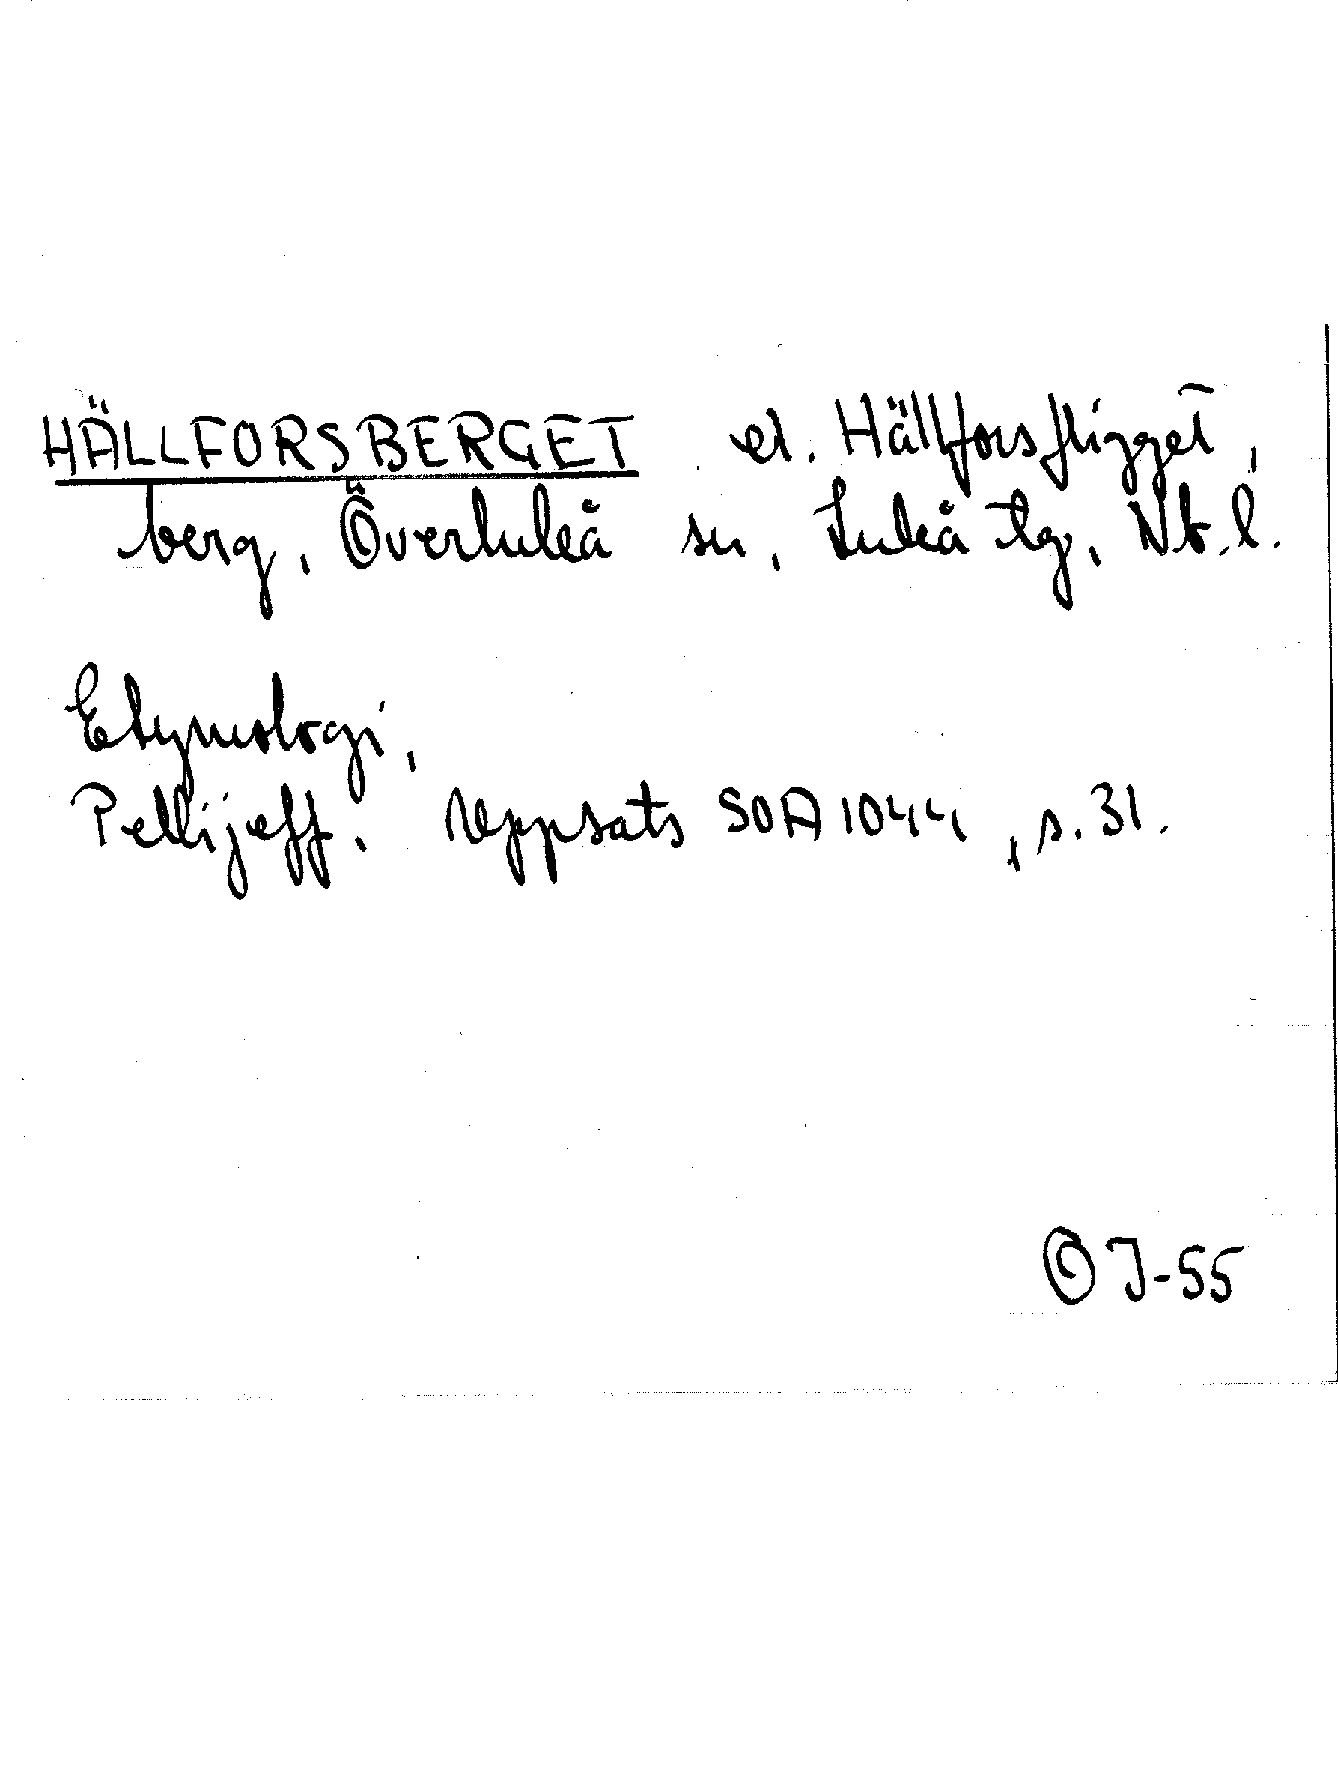 HÄLLFORSBERGET el. Hällforsfligget,
berg, Överluleå sn, Luleå tg, Nb. l.
Etymologi,
Pellijeff. Uppsats SOA 1044, s. 31.
© J-55